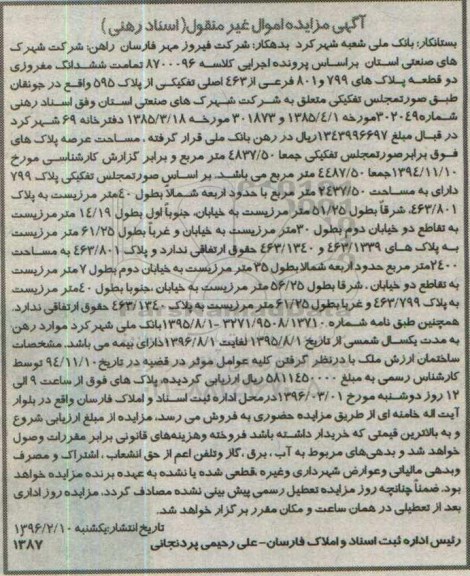 آگهی مزایده اموال غیر منقول (اسناد رهنی)
بستانکار: بانک ملی شعبه شهرکرد بدهکار: شرکت فیروز مهر فارسان راهن: شرکت شهرک
های صنعتی استان براساس پرونده اجرایی کلاسه ۸۷۰۰۰۹۶ تمامت ششدانک مفروزی
دو قطعه پلاک های ۷۹۹ و ۸۰۱ فرعی از ۴۶۳ اصلی تفکیکی از پلاک ۵۹۵ واقع در جونقان
طبق صورتمجلس تفکیکی متعلق به شرکت شهرک های صنعتی استان وفق اسناد رهنی
شماره ۳۰۲۰۴۹ مورخه ۱۳۸۵/۴/۱ و ۳۰۱۸۷۳ مورخه ۱۳۸۵/۳/۱۸ دفترخانه ۶۹ شهرکرد
در قبال مبلغ ۱۳۴۳۹۹۶۶۹۷ ریال در رهن بانک ملی قرار گرفته، مساحت عرصه پلاک های
فوق برابر صورتمجلس تفکیکی جمعا ۴۸۳۷/۵۰ متر مربع و برابر گزارش کارشناسی مورخ
۱۳۹۴/۱۱/۱۰ جمعا ۴۴۸۷/۵۰ متر مربع می باشد. بر اساس صورتمجلس تفکیکی پلاک ۷۹۹
دارای به مساحت ۲۴۳۷/۵۰ متر مربع با حدود اربعه شمالاً بطول ۴۰ متر مرزیست به پلاک
۴۶۳/۸۰۱، شرقاً بطول ۵۱/۲۵ متر مرزیست به خیابان، جنوباً اول بطول ۱۴/۱۹ متر مرزیست
به تقاطع دو خیابان دوم بطول ۳۰ متر مرزیست به خیابان و غرباً بطول ۶۱/۲۵ متر مرزیست
به پلاک های ۴۶۳/۱۳۳۹ و ۴۶۳/۱۳۴۰ حقوق ارتفاقی ندارد و پلاک ۴۶۳/۸۰۱ به مساحت
۲۴۰۰ متر مربع حدود اربعه شمالا بطول ۳۵ متر مرزیست به خیابان دوم بطول ۷ متر مرزیست
به تقاطع دو خیابان، شرقا بطول ۵۶/۲۵ متر مرزیست به خیابان، جنوبا بطول ۴۰ متر مرزیست
به پلاک ۴۶۳/۷۹۹ و غربا بطول ۶۱/۲۵ متر مرزیست به پلاک ۴۶۳/۱۳۴۰ حقوق ارتفاقی ندارد.
همچنین طبق نامه شماره ۳۲۷۱/۹۵۰۸/۱۳۷۱۰ -۱۳۹۵/۸/۱ بانک ملی شهرکرد موارد رهن
به مدت یکسال شمسی از تاریخ ۱۳۹۵/۸/۱ لغایت ۱۳۹۶/۸/۱ دارای بیمه می باشد. مشخصات
ساختمان ارزش ملک با درنظر گرفتن کلیه عوامل موثر در قضیه در تاریخ ۹۴/۱۱/۱۰ توسط
کارشناس رسمی به مبلغ ۵۸۱۱۴۵۰۰۰۰ ریال ارزیابی گردیده، پلاک های فوق از ساعت ۹ الی
۱۲ روز دوشنبه مورخ ۱۳۹۶/۰۳/۰۱ درمحل اداره ثبت اسناد و املاک فارسان واقع در بلوار
آیت اله خامنه ای از طریق مزایده حضوری به فروش می رسد، مزایده از مبلغ ارزیابی شروع
و به بالاترین قیمتی که خریدار داشته باشد فروخته وهزینه‌های قانونی برابر مقررات وصول
خواهد شد و بدهی‌های مربوط به آب، برق، گاز وتلفن اعم از حق انشعاب، اشتراک و مصرف
وبدهی مالیاتی وعوارض شهرداری وغیره ،قطعی شده یا نشده به عهده برنده مزایده خواهد
بود. ضمناً چنانچه روز مزایده تعطیل رسمی پیش بینی نشده مصادف گردد، مزایده روز اداری
بعد از تعطیلی در همان ساعت و مکان مقرر برگزار خواهد شد.
تاریخ انتشار:یکشنبه ۱۳۹۶/۲/۱۰
رئیس اداره ثبت اسناد و املاک فارسان- علی رحیمی پردنجانی ۱۳۸۷